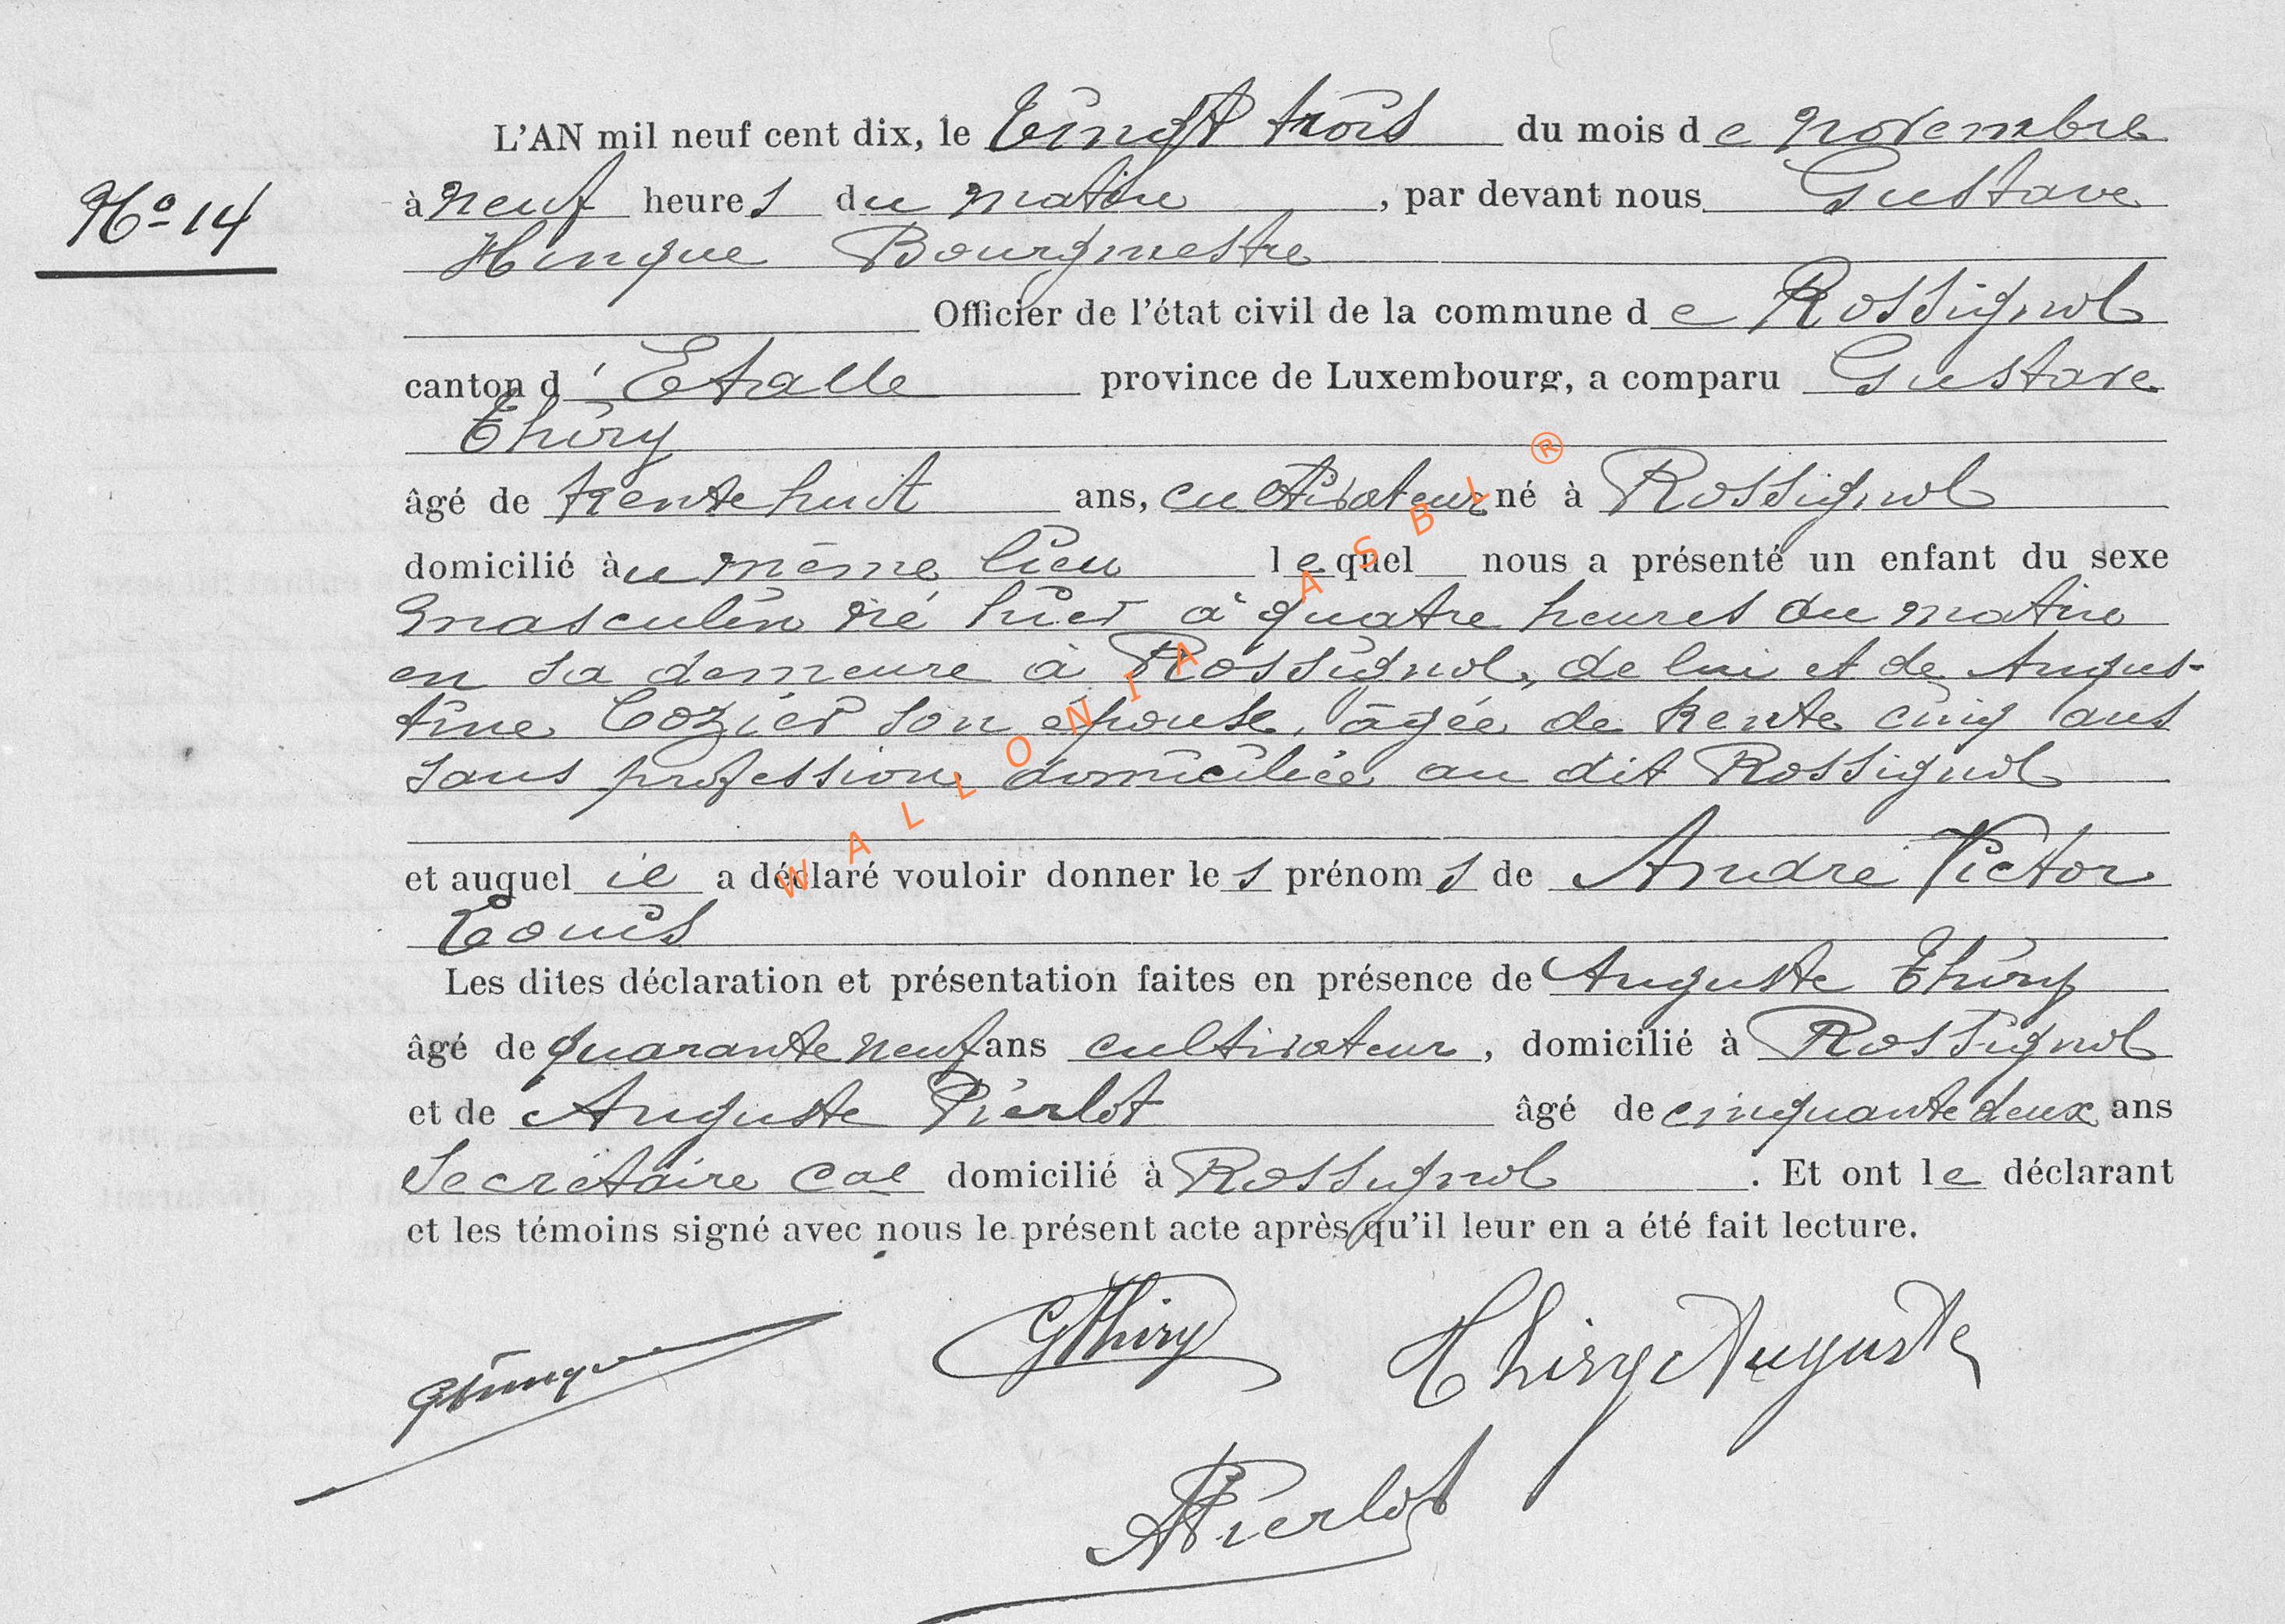 L'AN mil neuf cent dix, le vingt trois du mois de novembre
N° 14
à neuf heures du matin, par devant nous Gustave
Hinque Bourgmestre
Officier de l'état civil de la commune de Rossignol
canton d'Etalle province de Luxembourg, a comparu Gustave
Thiry
âgé de trente huit ans, cultivateur né à Rossignol
domicilié au même lieu lequel nous a présenté un enfant du sexe
masculin né hier à quatre heures du matin
en sa demeure à Rossignol, de lui et de Augus-
tine Cozier son épouse, âgée de trente cinq ans
sans profession domiciliée au dit Rossignol
et auquel il a déclaré vouloir donner les prénoms de André Victor
Louis
Les dites déclaration et présentation faites en présence de Auguste Thiry
âgé de quarante neuf ans cultivateur, domicilié à Rossignol
et de Auguste Pierlot âgé de cinquante deux ans
Secrétaire cal domicilié à Rossignol. Et ont le déclarant
et les témoins signé avec nous le présent acte après qu'il leur en a été fait lecture.
GHinque GThiry Thiry Auguste
APierlot
WALLONIA ASBL ®